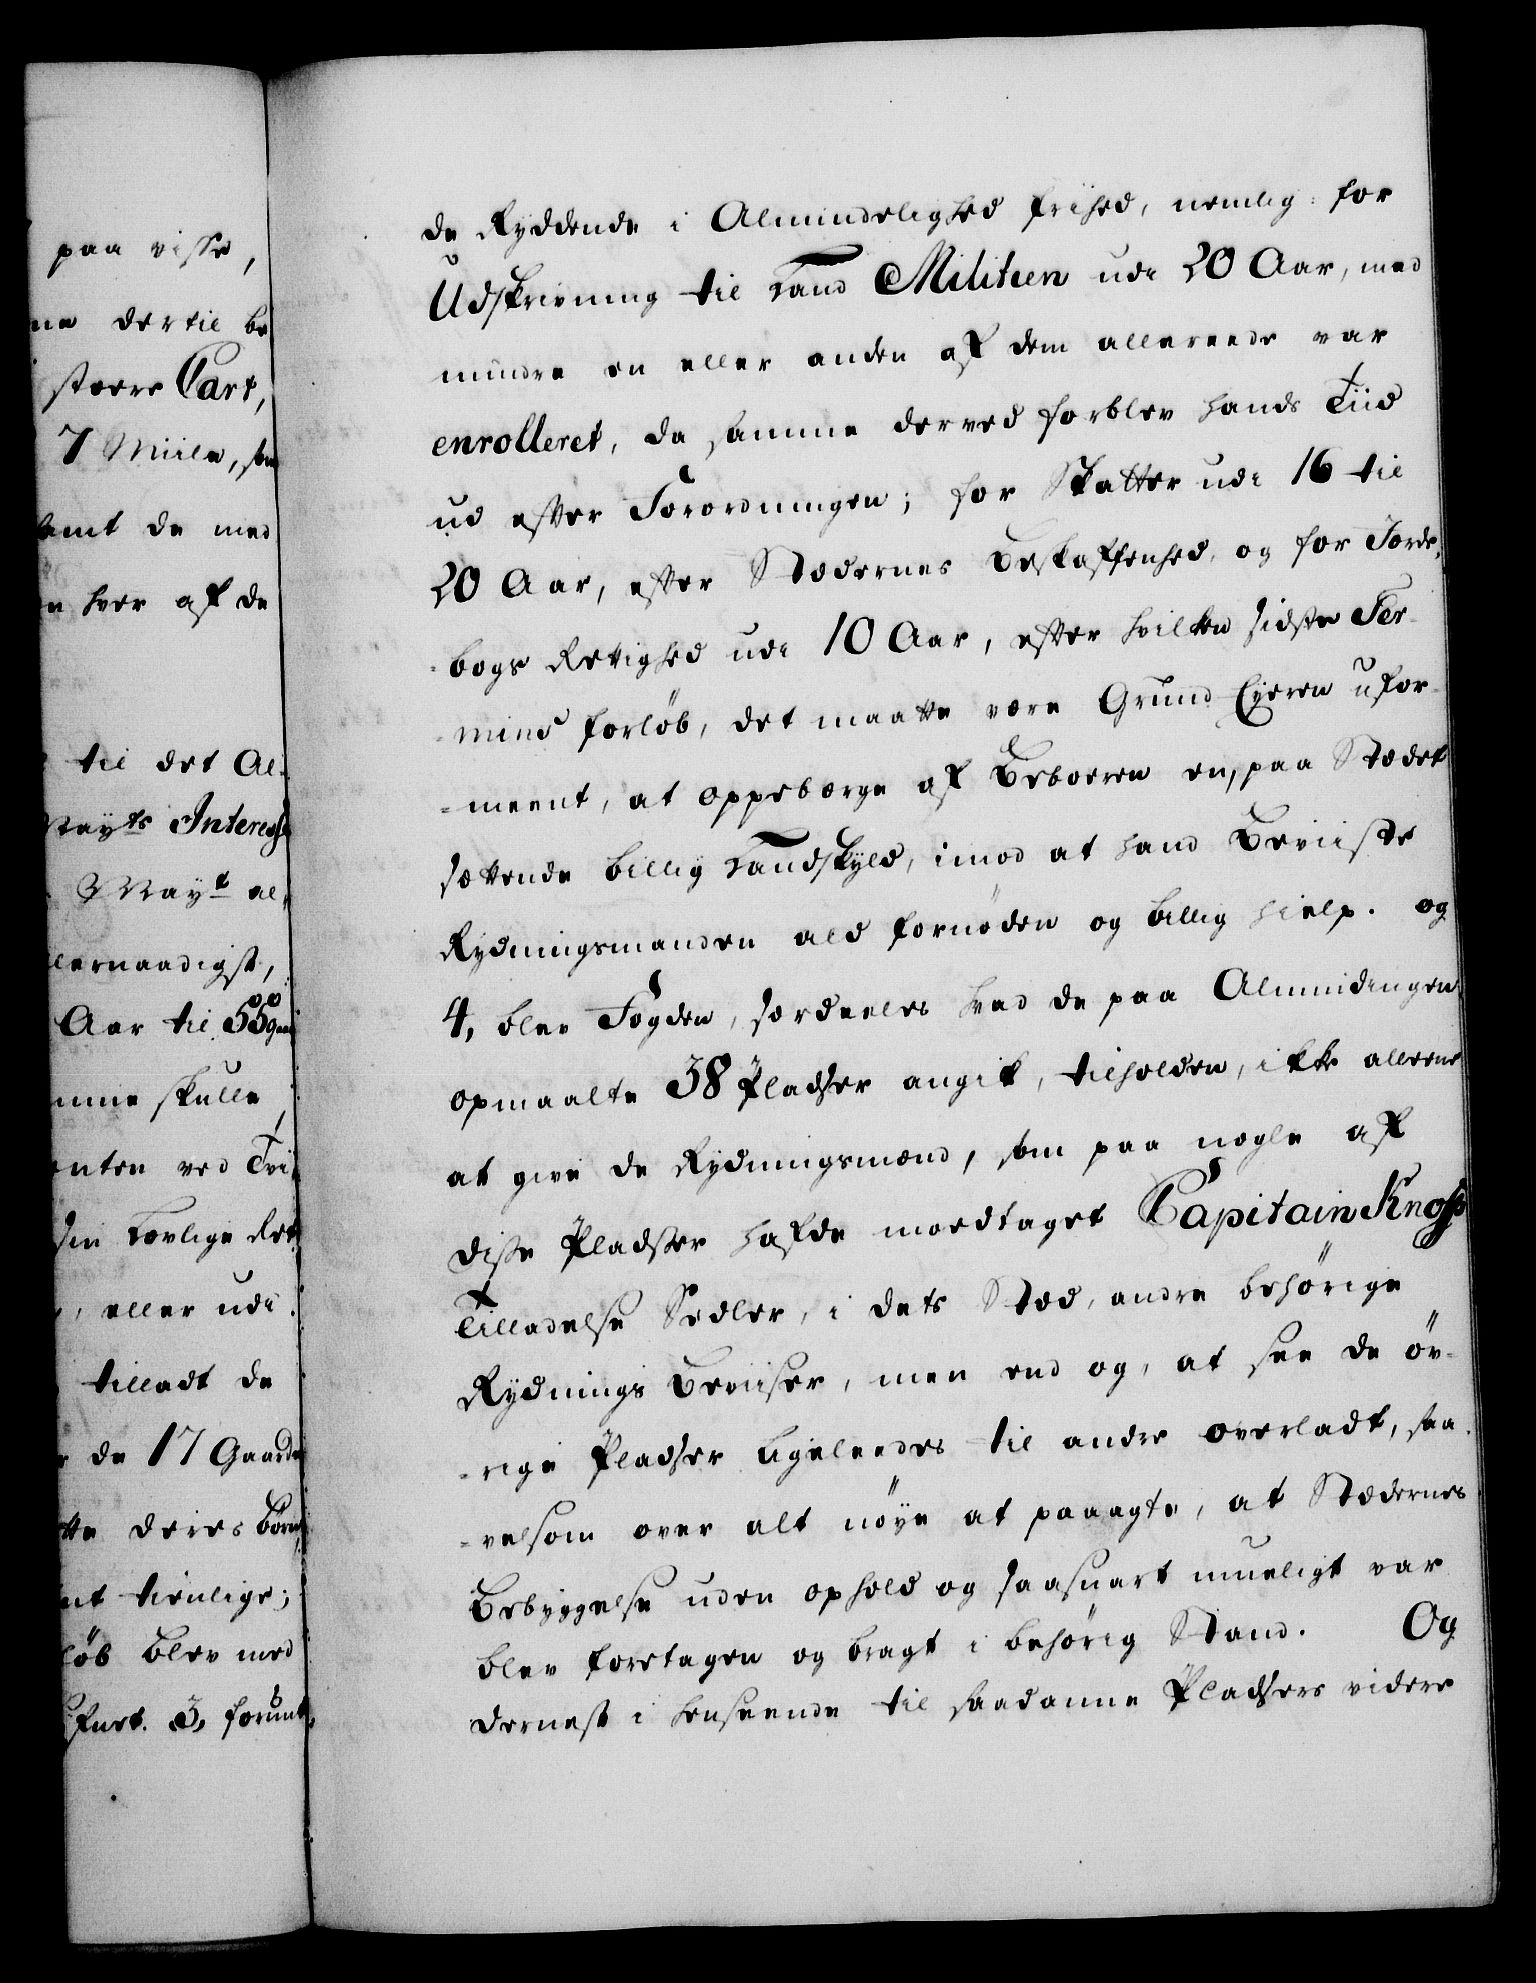 paa visse,
dertil be
større Cart,
7 Miile, som
samt de med
hver af de
til det Al-
Mayts Interesse
Mayt al-
lernaadigst,
Aar til
skulle
enten ved Tvi
sin Lovlige Ret
, eller udi
tilladt de
de 17 Gaarde
deres Børn
tienlige;
løb blev med
3, forundt
de Ryddende i Almindelighed friehed, nemlig: for
Udskrivning til Land Militien udi 20 Aar, med
mindre en eller anden af dem allereede var
enrolleret, da samme derved forblev hands Tiid
ud efter Forordningen; for Skatter udi 16 til
20 Aar, efter Stædernes Beskaffenhed, og for Jorde-
-bogs Rettighed udi 10 Aar, efter hvilken sidste Ter-
-mins forløb, det maatte være Grund Eyeren ufor-
-meent, at oppebærge af Beboeren en, paa Stædet
sættende billig Landskyld, imod at hand Beviiste
Rydningsmanden ald fornøden og billig hielp. og
4, blev Fogden, særdeeles hvad de paa Almindingen
opmaalte 38 Pladser angik, tilholden, ikke alleene
at give de Rydningsmænd, som paa nogle af
disse Pladser hafde modtaget Capitain Knoff
Tilladelse Sedler, i dets Sted, andre behørige
Rydnings Beviiser, men end og, at see de øv-
-rige Pladser ligeleedes til andre overladt, saa-
-velsom over alt nøye at paaagte, at Stædernes
Bebyggelse uden ophold og saasnart mueligt var
blev foretagen og bragt i behørig Stand. Og
dernest i henseende til saadanne Pladsers videre